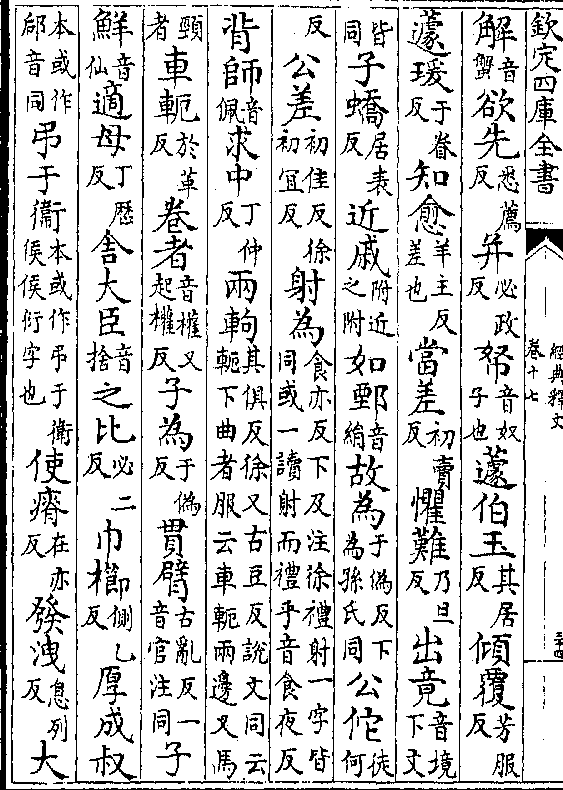 欽定四庫全書
經典釋文
卷十七
解音蟹欲先悉薦反并必政反帑音奴子也蘧伯玉其居反傾覆芳服反
蘧瑗于眷反知愈羊主反差也當差初賣反懼難乃旦反出竟音境下文
皆同子蟜居表反近戚附近之附如鄄音絹故為于偽反下為孫氏同公佗徒何
反公差初佳反徐初宜反射為食亦反下及注徐禮射一字皆同或一讀射而禮乎音食夜反
背師音佩求中丁仲反兩軥其俱反徐又古豆反說文同云軛下曲者服云車軛兩邊叉馬
頸者車軛於革反卷者音權又起權反子為于偽反貫臂古亂反一音官注同子
鮮音仙適母丁歷反舍大臣音捨之比必二反巾櫛側乙反厚成叔
本或作郈音同弔于衞本或作弔于衞侯侯衍字也使瘠在亦反發洩息列反大